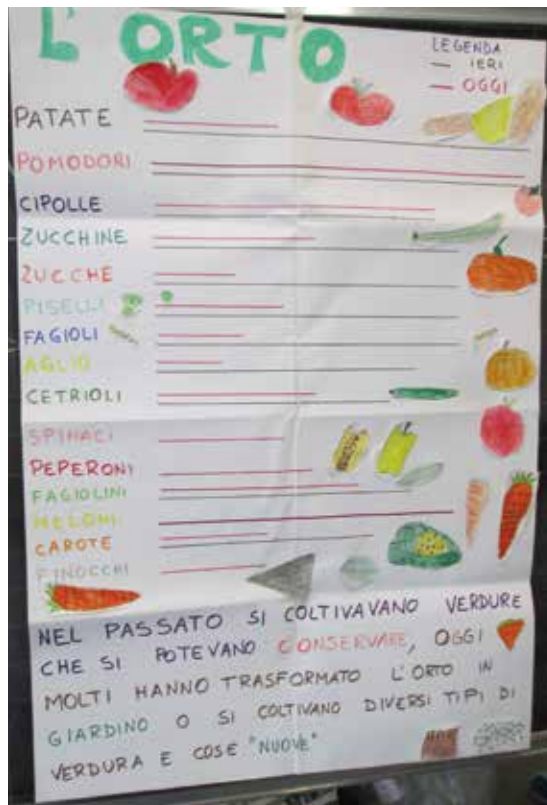 L'ORTO
LEGENDA
— IERI
— OGGI
PATATE
POMODORI
CIPOLLE
ZUCCHINE
ZUCCHE
PISELLI
FAGIOLI
AGLIO
CETRIOLI
SPINACI
PEPERONI
FAGIOLINI
MELONI
CAROTE
FINOCCHI
NEL PASSATO SI COLTIVAVANO VERDURE
CHE SI POTEVANO CONSERVARE, OGGI
MOLTI HANNO TRASFORMATO L'ORTO IN
GIARDINO O SI COLTIVANO DIVERSI TIPI DI
VERDURA E COSE "NUOVE"